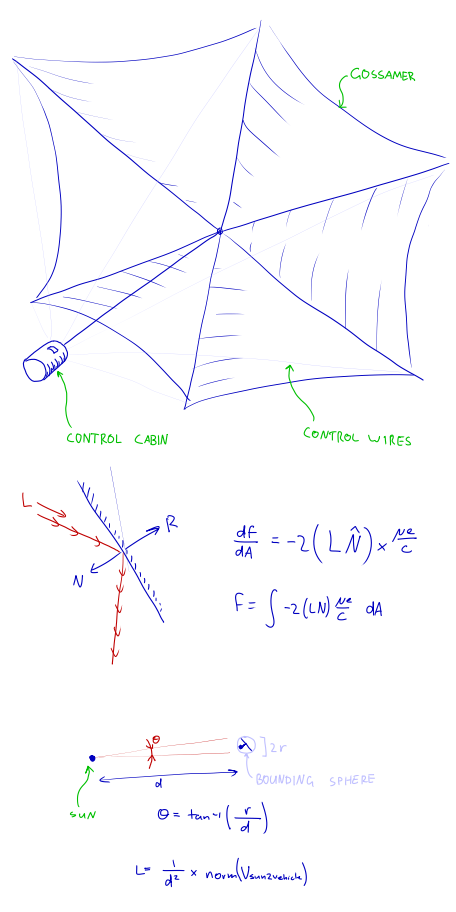 GOSSAMER
CONTROL CABIN
CONTROL WIRES
L
R
N
df/dA = -2(L N̂) × Ne/c
F = ∫ -2(LN) Ne/c dA
θ
]2r
d
BOUNDING SPHERE
SUN
θ = tan⁻¹(r/d)
L = 1/d² × norm(Vsun2vehicle)